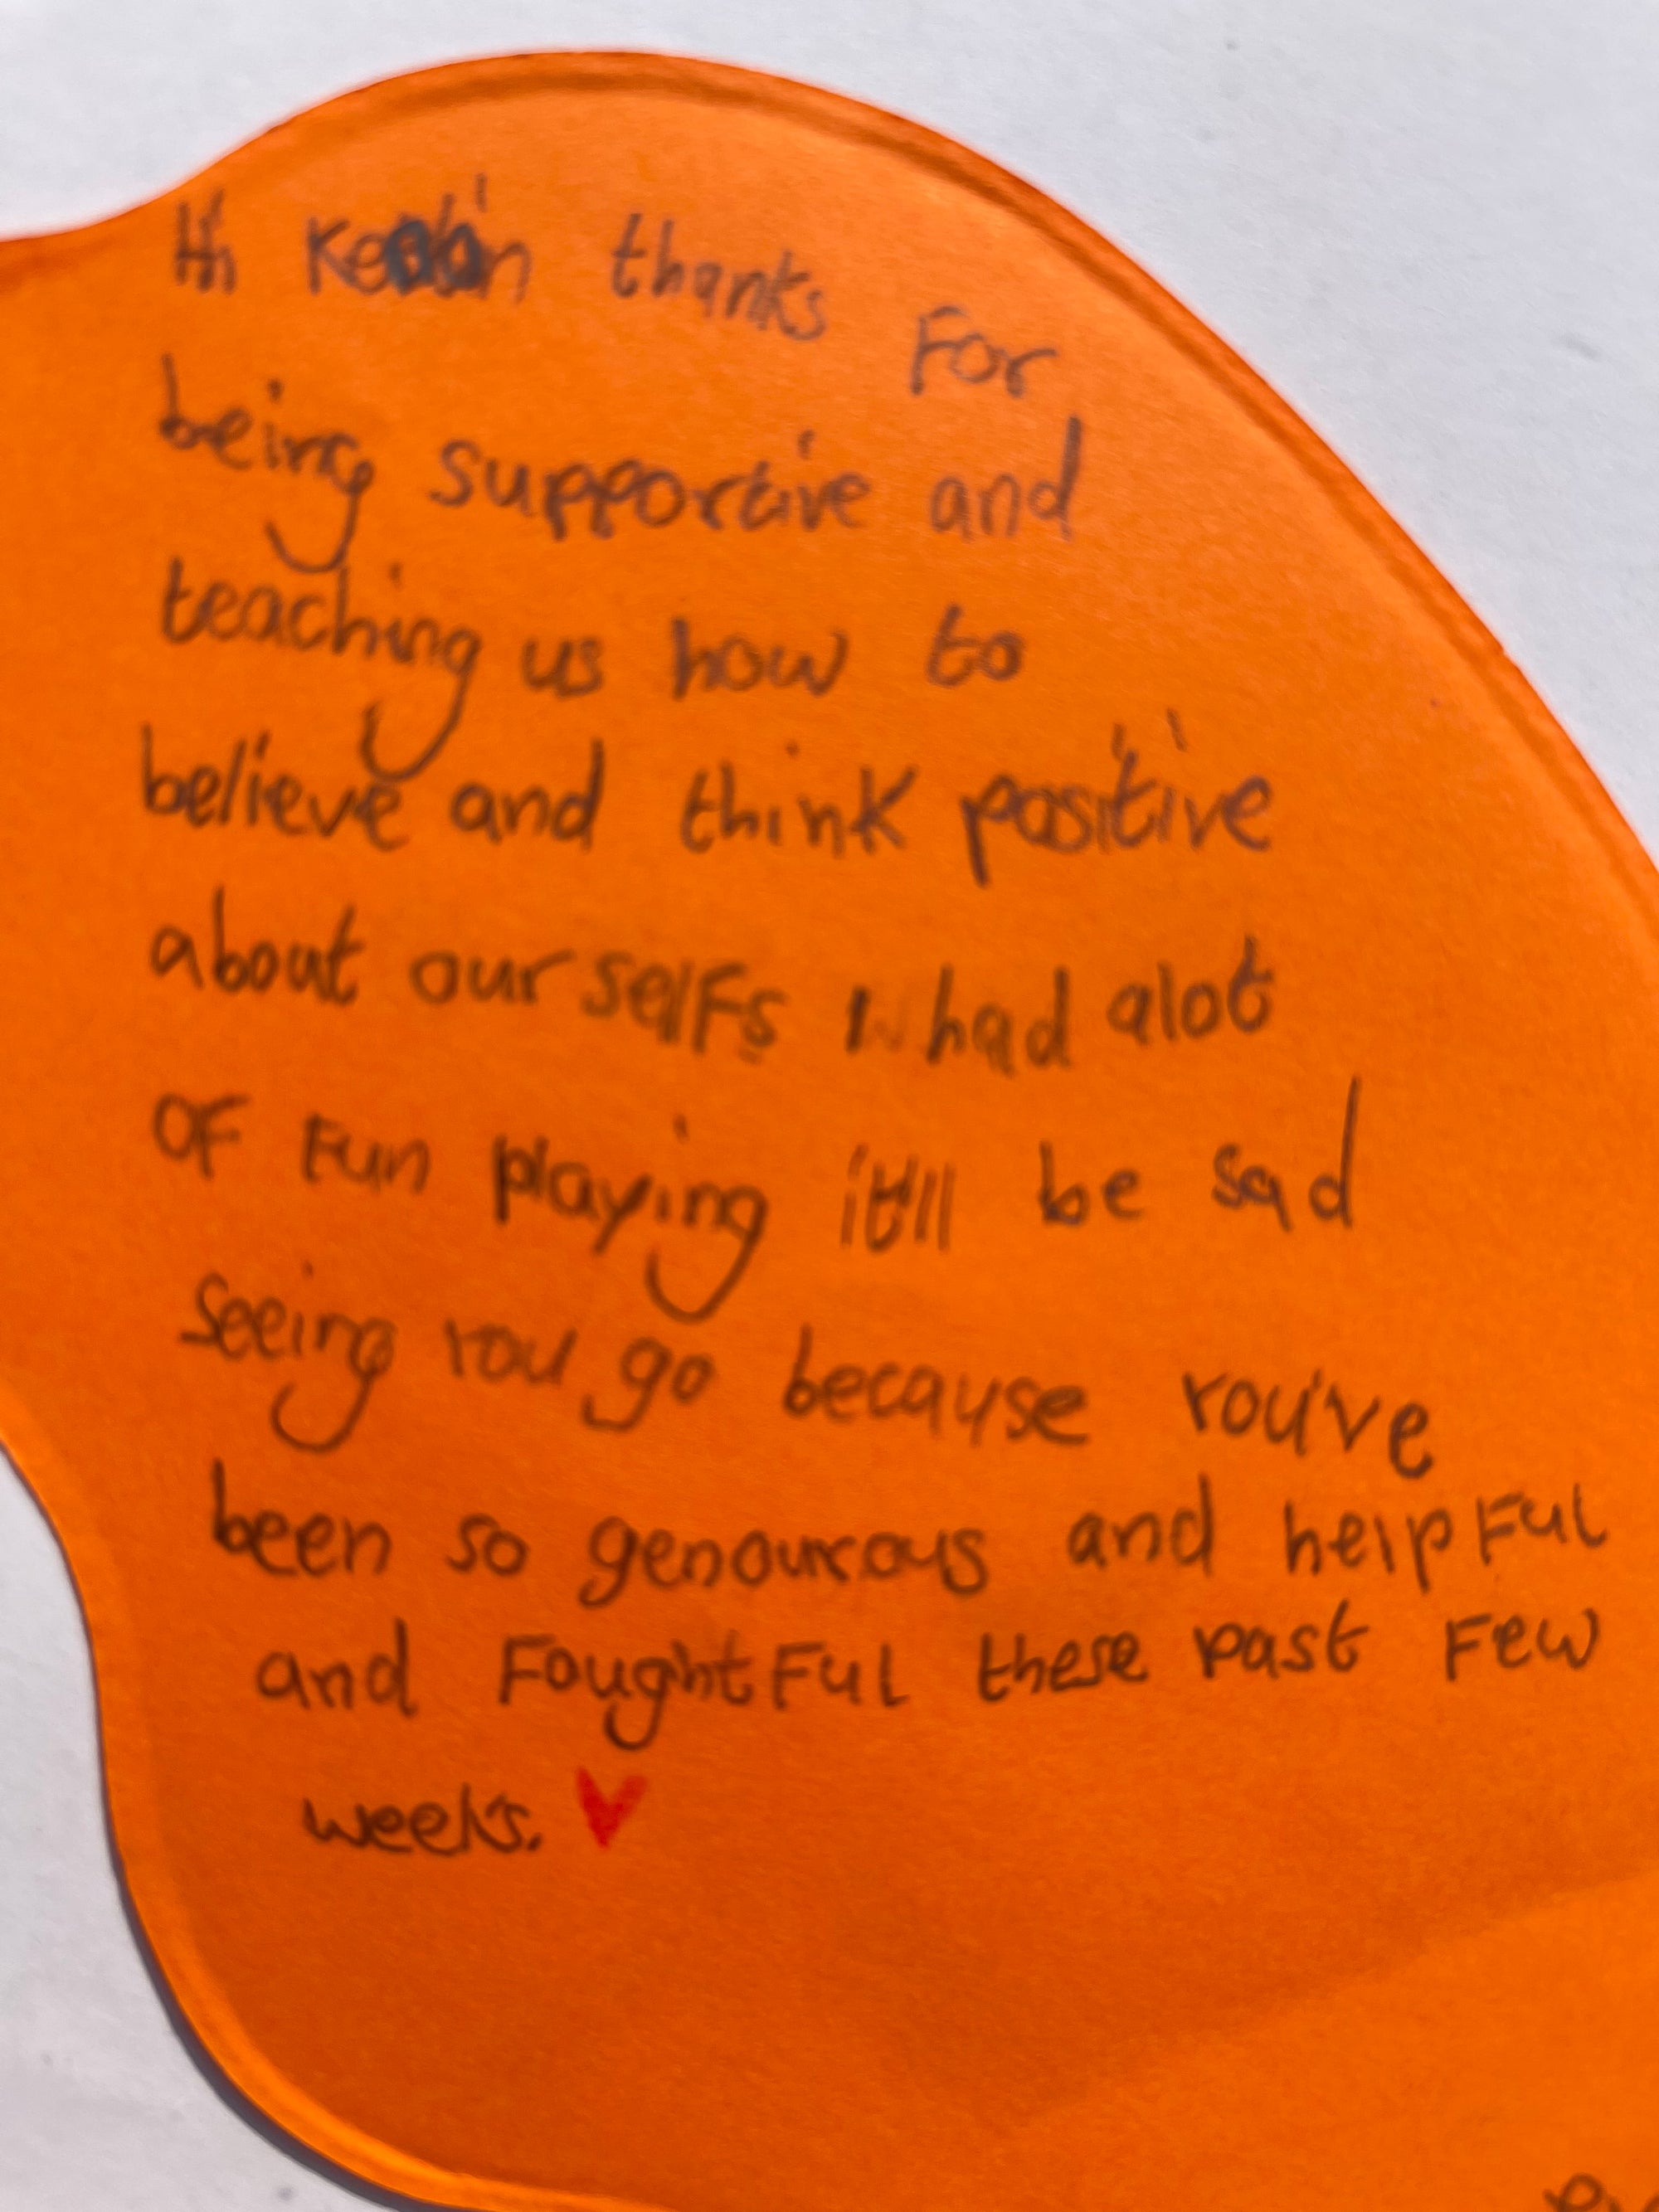 Hi thanks For
being supportive and
teaching us how to
believe and think positive
about our selFs I had alot
OF Fun playing it'll be sad
seeing You go because You've
been so genourous and helpFul
and FoughtFul these past Few
weeks.